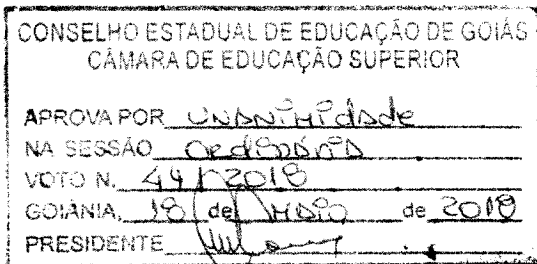 CONSELHO ESTADUAL DE EDUCAÇÃO DE GOIÁS
CÂMARA DE EDUCAÇÃO SUPERIOR
APROVA POR UNANIMIDADE
NA SESSÃO ORDINÁRIA
VOTO N. 44/2018
GOIÂNIA, 18 de MAIO de 2018
PRESIDENTE